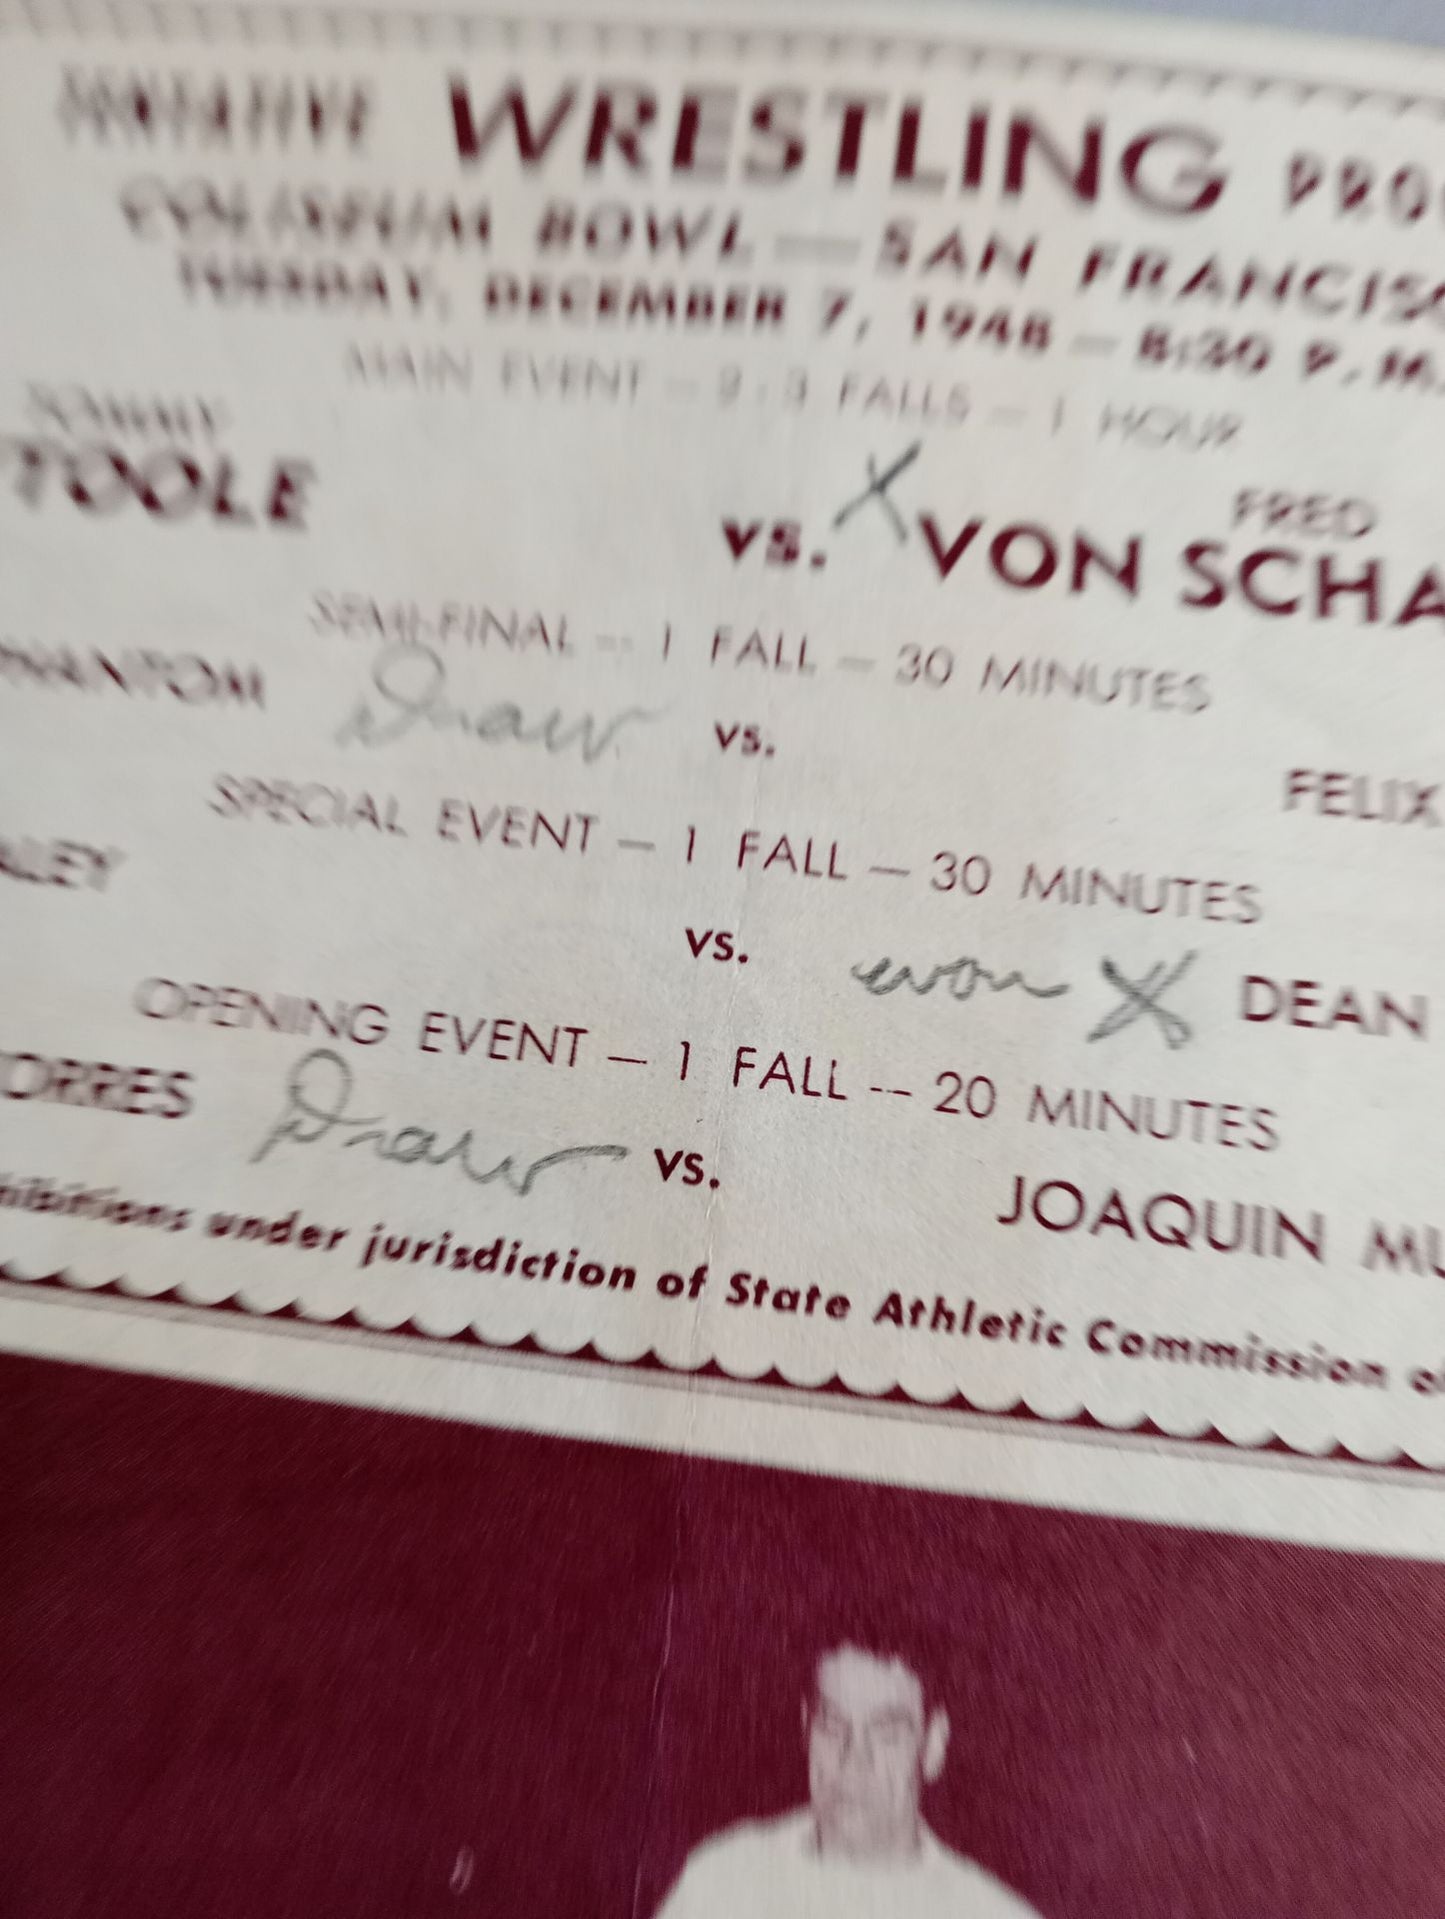 TENTATIVE WRESTLING PROG
COLISEUM BOWL — SAN FRANCISC
TUESDAY, DECEMBER 7, 1948 — 8:30 P.M.
MAIN EVENT — 2-3 FALLS — 1 HOUR
FRED
TOOLE vs. X VON SCHA
SEMI-FINAL — 1 FALL — 30 MINUTES
PHANTOM Draw vs. FELIX
SPECIAL EVENT — 1 FALL — 30 MINUTES
ALEY vs. won X DEAN
OPENING EVENT — 1 FALL -- 20 MINUTES
ORRES Draw vs. JOAQUIN MU
hibitions under jurisdiction of State Athletic Commission of